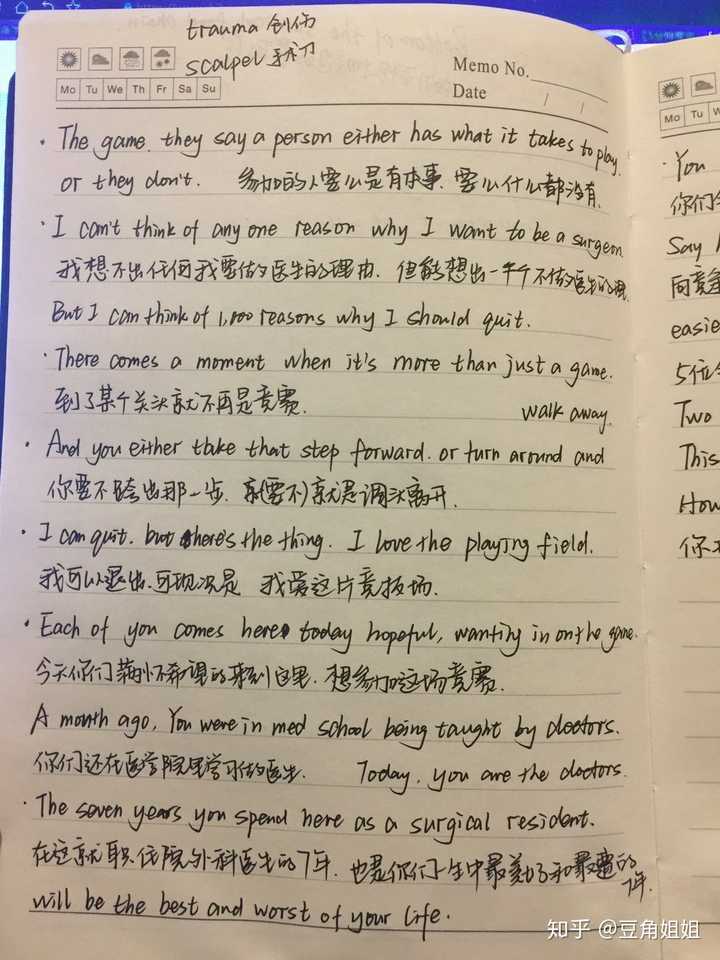 trauma 创伤
scalpel 手术刀
Memo No.
Mo Tu We Th Fr Sa Su
Date / /
· The game. they say a person either has what it takes to play.
or they don't. 参加的人要么是有本事. 要么什么都没有.
· I can't think of any one reason why I want to be a surgeon.
我想不出任何我要做医生的理由. 但能想出一千个不做医生的理由.
But I can think of 1,000 reasons why I should quit.
· There comes a moment when it's more than just a game.
到了某个关头就不再是竞赛.
walk away.
· And you either take that step forward. or turn around and
你要不跨出那一步. 就(要不)就是调头离开.
· I can quit. but here's the thing. I love the playing field.
我可以退出. 可现况是 我爱这片竞技场.
· Each of you comes here today hopeful, wanting in on the game.
今天你们满怀希望的来到这里. 想参加这场竞赛.
A month ago, You were in med school being taught by doctors.
你们还在医学院里学习做医生. Today, you are the doctors.
· The seven years you spend here as a surgical resident.
在这就职住院外科医生的7年. 也是你们一生中最美好和最遭的
7年.
will be the best and worst of your life.
· You
你们
Mo Tu W
Say
向竞
easie
5位
Two
This
How
你
知乎 @豆角姐姐